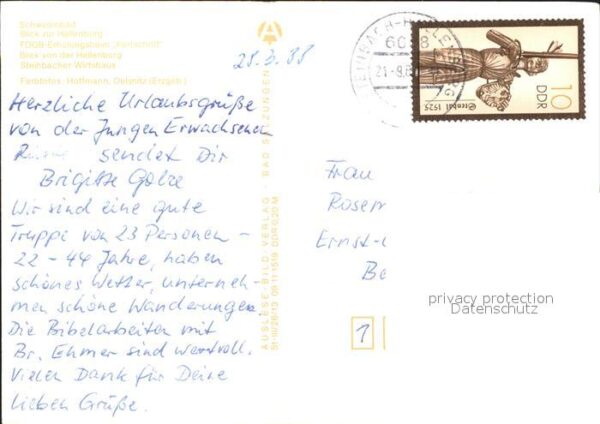 Schwimmbad
Blick zur Hallenburg
FDGB-Erholungsheim "Fortschritt"
Blick von der Hallenburg
Steinbacher Wirtshaus
Farbfotos: Hoffmann, Oelsnitz (Erzgeb.)
28.3.88
Herzliche Urlaubsgrüße
von der Jungen Erwachsenen
sendet Dir
Brigitte
Wir sind eine gute
Truppe von 23 Personen –
22 – 44 Jahre, haben
schönes Wetter, unterneh-
men schöne Wanderungen.
Die Bibelarbeiten mit
Br. Ehmer sind wertvoll.
Vielen Dank für Deine
lieben Grüße.
A
AUSLESE-BILD-VERLAG · BAD SALZUNGEN
DDR 0,20 M
STEINBACH-HALLENBERG
10
DDR
1925
Frau
Rosem
Ernst-
Be
1
privacy protection
Datenschutz